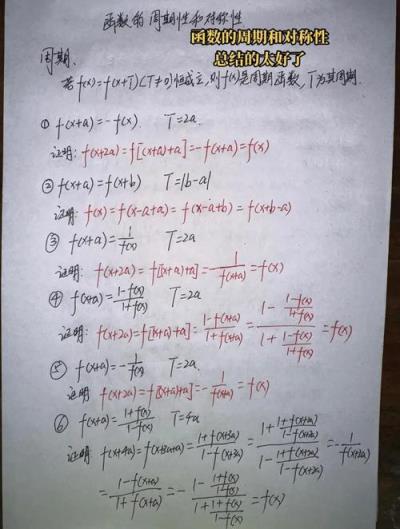 函数的周期性和对称性
函数的周期和对称性
总结的太好了
周期.
若f(x)=f(x+T)(T≠0)恒成立,则f(x)是周期函数,T为其周期.
① f(x+a)=-f(x). T=2a.
证明: f(x+2a)=f[(x+a)+a]=-f(x+a)=f(x)
② f(x+a)=f(x+b) T=|b-a|
证明: f(x)=f(x-a+a)=f(x-a+b)=f(x+b-a)
③ f(x+a)=1/f(x) T=2a
证明: f(x+2a)=f[(x+a)+a]=1/f(x+a)=f(x)
④ f(x+a)=(1-f(x))/(1+f(x)) T=2a
证明: f(x+2a)=f[(x+a)+a]=(1-f(x+a))/(1+f(x+a))=(1-(1-f(x))/(1+f(x)))/(1+(1-f(x))/(1+f(x)))=f(x)
⑤ f(x+a)=-1/f(x) T=2a.
证明 f(x+2a)=f[(x+a)+a]=-1/f(x+a)=f(x)
⑥ f(x+a)=(1+f(x))/(1-f(x)) T=4a
证明 f(x+4a)=f(x+3a+a)=(1+f(x+3a))/(1-f(x+3a))=(1+(1+f(x+2a))/(1-f(x+2a)))/(1-(1+f(x+2a))/(1-f(x+2a)))=-1/f(x+2a)
=(1-f(x+a))/(1+f(x+a))=-(1-(1+f(x))/(1-f(x)))/(1+(1+f(x))/(1-f(x)))=f(x)